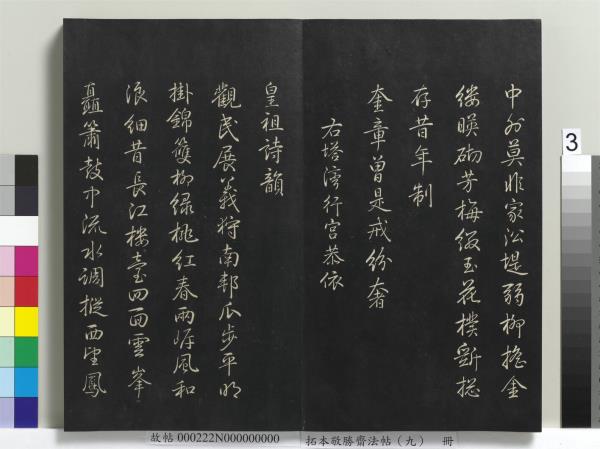 中外莫非家沿堤弱柳搖金
縷暎砌芳梅綴玉花樸斵捴
存昔年制
奎章曽是戒紛奢
右塔灣行宮恭依
皇祖詩韻
觀民展義狩南邦瓜步平明
掛錦䉶柳綠桃紅春兩岸風和
浪細昔長江樓臺四面雲峯
矗簫鼓中流水調摐西望鳳
3
故帖 000222N000000000 拓本敬勝齋法帖（九） 冊